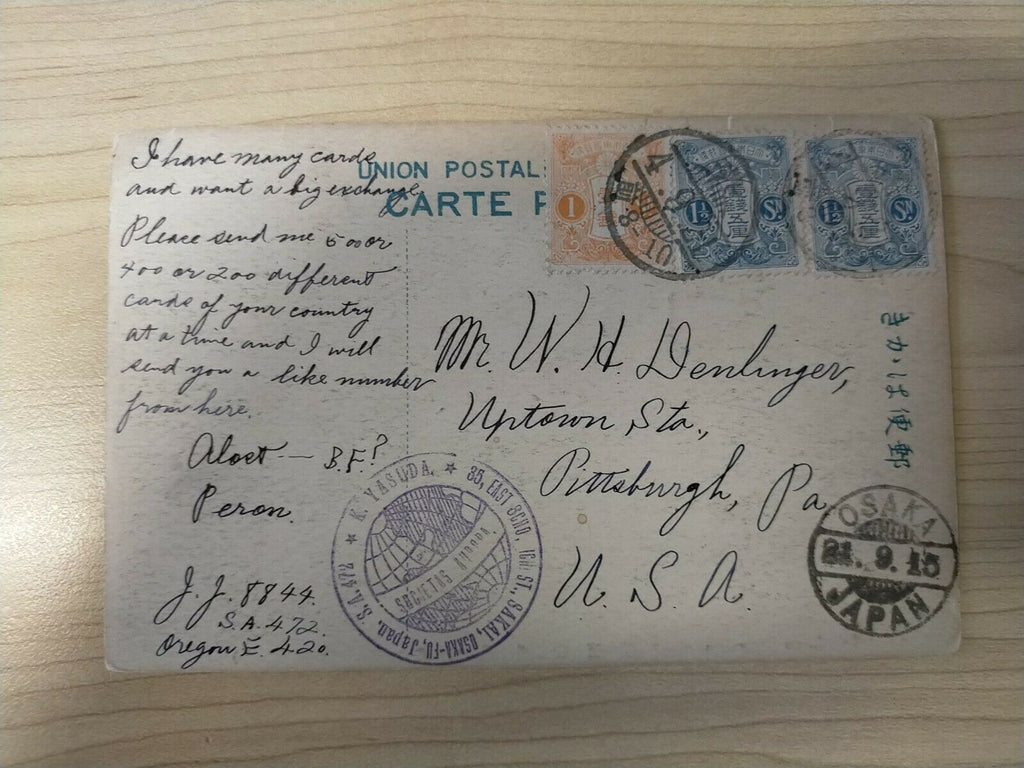 I have many cards
and want a big exchange
Please send me 500 or
400 or 200 different
cards of your country
at a time and I will
send you a like number
from here.
Alost — B.F?
Peron.
J.J. 8844.
S.A. 472.
Oregon E. 420.
UNION POSTAL
CARTE P
1
1½ Sn.
壹錢五厘
1½ Sn.
壹錢五厘
Mr. W. H. Denlinger,
Uptown Sta.,
Pittsburgh, Pa
U. S. A.
きかは便郵
★ K. YASUDA. ★ 35, EAST 3CHO, ICHI ST., SAKAI, OSAKA-FU, Japan. S.A. 472
SOCIETAS
4.9.
OSAKA
21.9.15
JAPAN